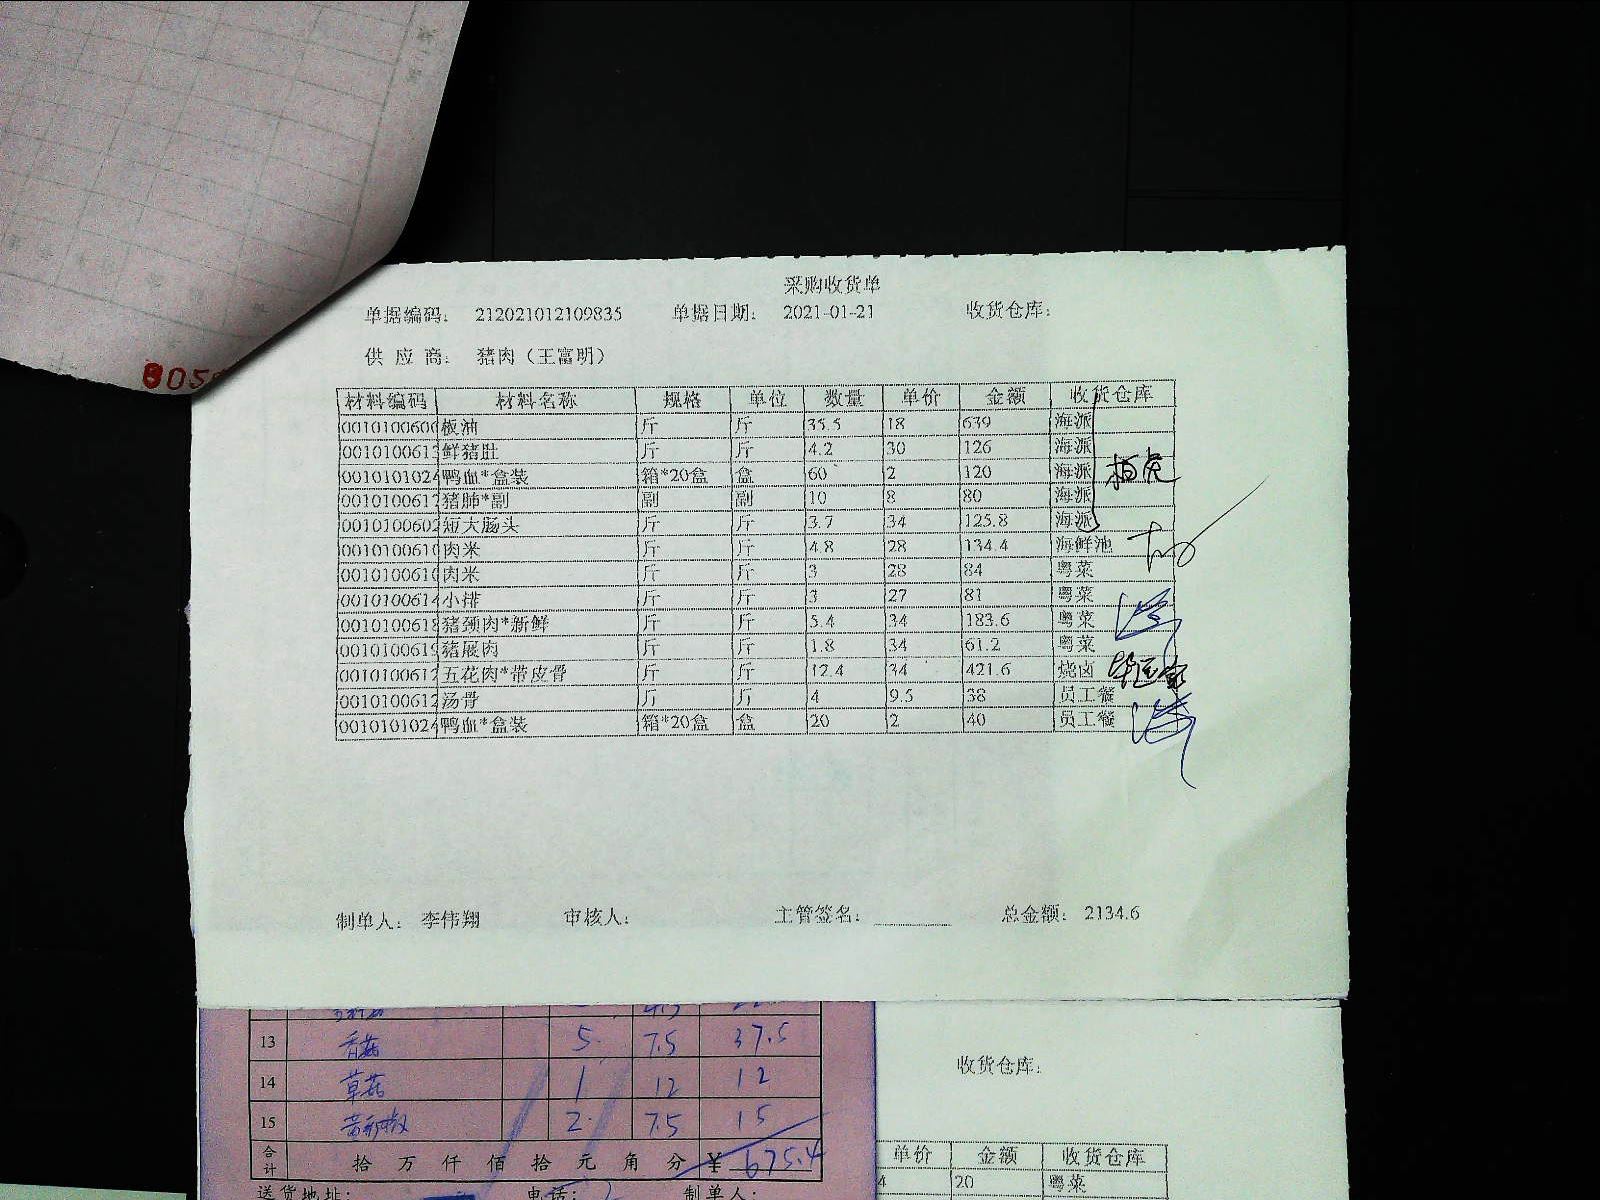 采购收货单
单据编码： 212021012109835 单据日期： 2021-01-21 收货仓库：
供 应 商： 猪肉（王富明）
材料编码 材料名称 规格 单位 数量 单价 金额 收货仓库
0010100600 板油 斤 斤 35.5 18 639 海派
0010100613 鲜猪肚 斤 斤 4.2 30 126 海派
0010101024 鸭血*盒装 箱*20盒 盒 60 2 120 海派
0010100617 猪肺*副 副 副 10 8 80 海派
0010100602 短大肠头 斤 斤 3.7 34 125.8 海派
0010100610 肉米 斤 斤 4.8 28 134.4 海鲜池
0010100610 肉米 斤 斤 3 28 84 粤菜
0010100614 小排 斤 斤 3 27 81 粤菜
0010100618 猪颈肉*新鲜 斤 斤 5.4 34 183.6 粤菜
0010100619 猪展肉 斤 斤 1.8 34 61.2 粤菜
0010100617 五花肉*带皮骨 斤 斤 12.4 34 421.6 烧卤
0010100612 汤骨 斤 斤 4 9.5 38 员工餐
0010101024 鸭血*盒装 箱*20盒 盒 20 2 40 员工餐
制单人： 李伟翔 审核人： 主管签名： 总金额： 2134.6
13 香菇 5 7.5 37.5
14 草菇 1 12 12
15 2 7.5 15
合计 拾 万 仟 佰 拾 元 角 分 ￥ 675.4
送货地址： 电话： 制单人：
收货仓库：
单价 金额 收货仓库
4 20 粤菜